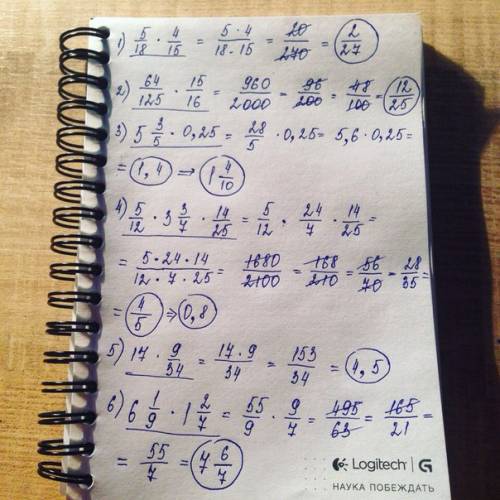 1) 5/18 · 4/15 = 5 · 4/18 · 15 = 20/270 = 2/27
2) 64/125 · 15/16 = 960/2000 = 96/200 = 48/100 = 12/25
3) 5 3/5 · 0,25 = 28/5 · 0,25 = 5,6 · 0,25 =
= 1,4 ⇒ 1 4/10
4) 5/12 · 3 3/7 · 14/25 = 5/12 · 24/7 · 14/25 =
= 5 · 24 · 14/12 · 7 · 25 = 1680/2100 = 168/210 = 56/70 = 28/35 =
= 4/5 ⇒ 0,8
5) 17 · 9/34 = 17 · 9/34 = 153/34 = 4,5
6) 6 1/9 · 1 2/7 = 55/9 · 9/7 = 495/63 = 165/21 =
= 55/7 = 7 6/7
Logitech G
НАУКА ПОБЕЖДАТЬ